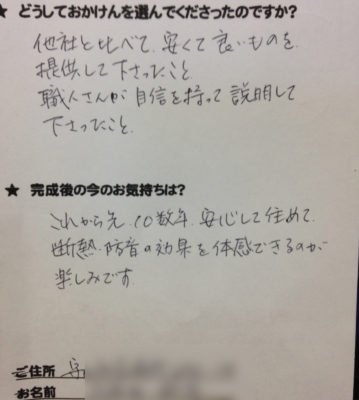 ★ どうしておかけんを選んでくださったのですか?
他社と比べて、安くて良いものを
提供して下さったこと
職人さんが自信を持って説明して
下さったこと
★ 完成後の今のお気持ちは?
これから先、10数年、安心して住めて、
断熱・防音の効果を体感できるのが
楽しみです
ご住所
お名前